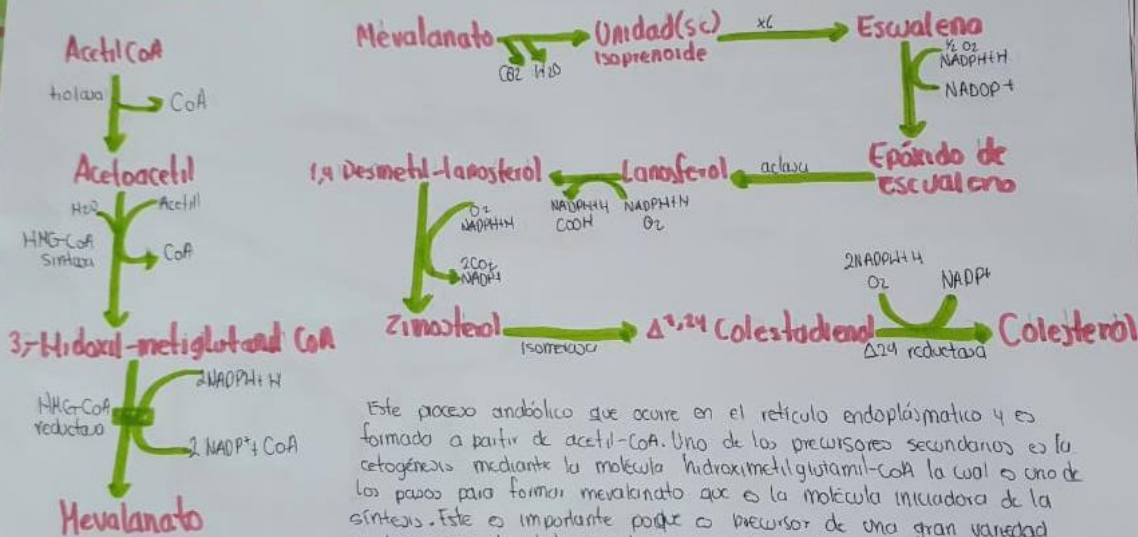 Acetil CoA
tiolasa
CoA
Acetoacetil
H2O
Acetil
HMG-CoA
Sintasa
CoA
3,-Hidoxil-metiglotaril CoA
HMG-CoA
reductasa
2NADPH+H
2 NADP++ CoA
Mevalanato
Mevalanato
CO2 H2O
Unidad(sc)
Isoprenoide
x6
Escualeno
½ O2
NADPH+H
NADOP+
Epóxido de
escualeno
aclasa
Lanosterol
NADPH+H
O2
NADPH+H
COOH
1,4 Desmetil-lanosterol
O2
NADPH+H
2CO2
NADP+
Zimosterol
Isomerasa
Δ⁸,24 Colestadienol
2NADPH+H
O2
NADP+
Δ24 reductasa
Colesterol
Este proceso anabólico que ocurre en el retículo endoplásmatico y es
formado a partir de acetil-CoA. Uno de los precursores secundarios es la
cetogénesis mediante la molécula hidroximetilglutamil-CoA la cual es uno de
los pasos para formar mevalanato que es la molécula iniciadora de la
síntesis. Este es importante porque es precursor de una gran variedad